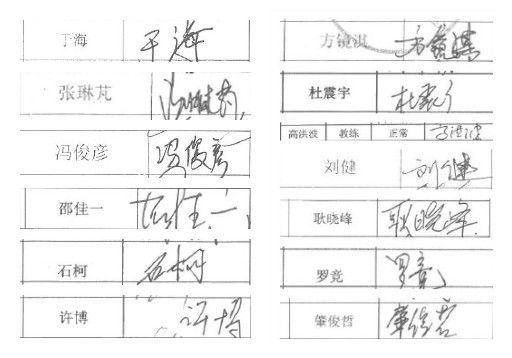 于海 于海
张琳芃 张琳芃
冯俊彦 冯俊彦
邵佳一 邵佳一
石柯 石柯
许博 许博
方镜淇 方镜淇
杜震宇 杜震宇
高洪波 教练 正常 高洪波
刘健 刘健
耿晓峰 耿晓峰
罗竟 罗竟
肇俊哲 肇俊哲